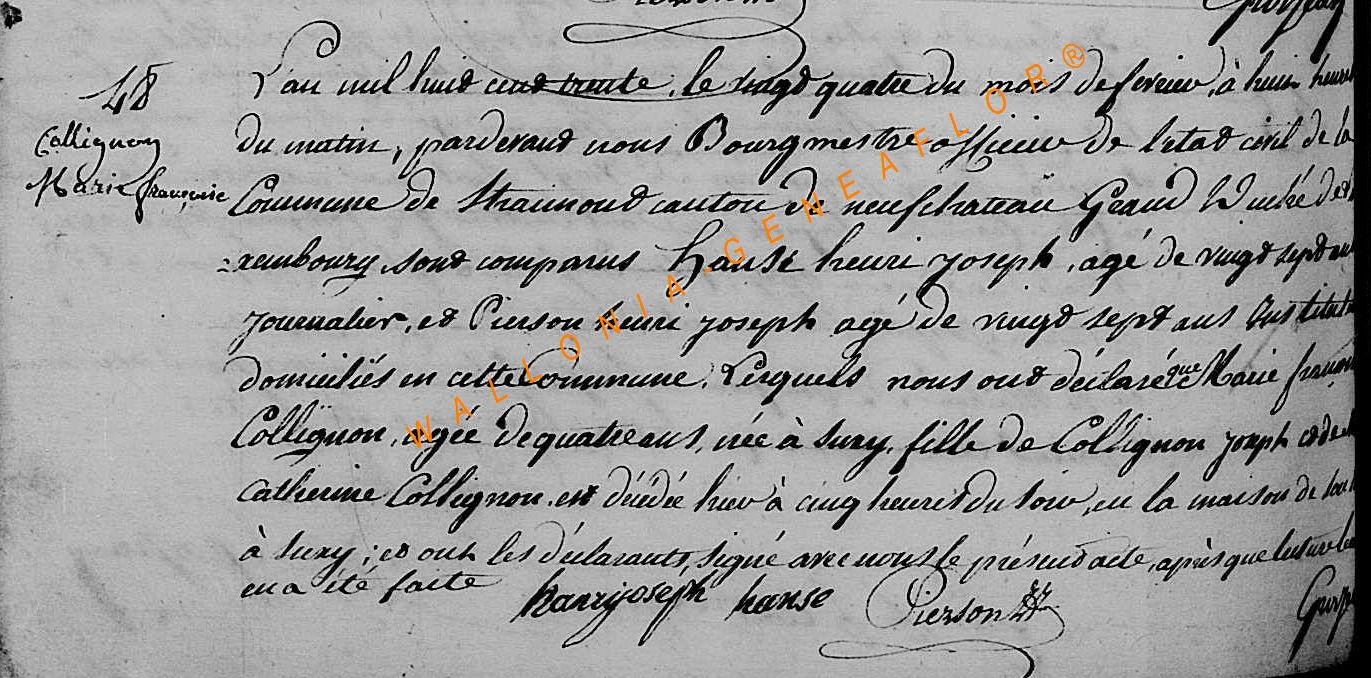 48
Collignon
Marie françoise
L'an mil huit cent trente, le vingt quatre du mois de fevrier, à huit heures
du matin, pardevant nous Bourgmestre officier de l'etat civil de la
Commune de Straimont canton de neufchateau Grand Duché de
xembourg, sont comparus Hanse henri joseph, agé de vingt sept ans
journalier, et Pierson henri joseph agé de vingt sept ans Instituteur
domiciliés en cette Commune. Lesquels nous ont déclaré que Marie françoise
Collignon, agée de quatre ans, née à Suxy, fille de Collignon joseph et de
Catherine Collignon, est décédée hier à cinq heures du soir, en la maison de son
à Suxy; et ont les déclarants, signé avec nous le présent acte, après que lecture leur
en a été faite
hanry joseph hanse Pierson
WALLONIA-GENEAFLOR®